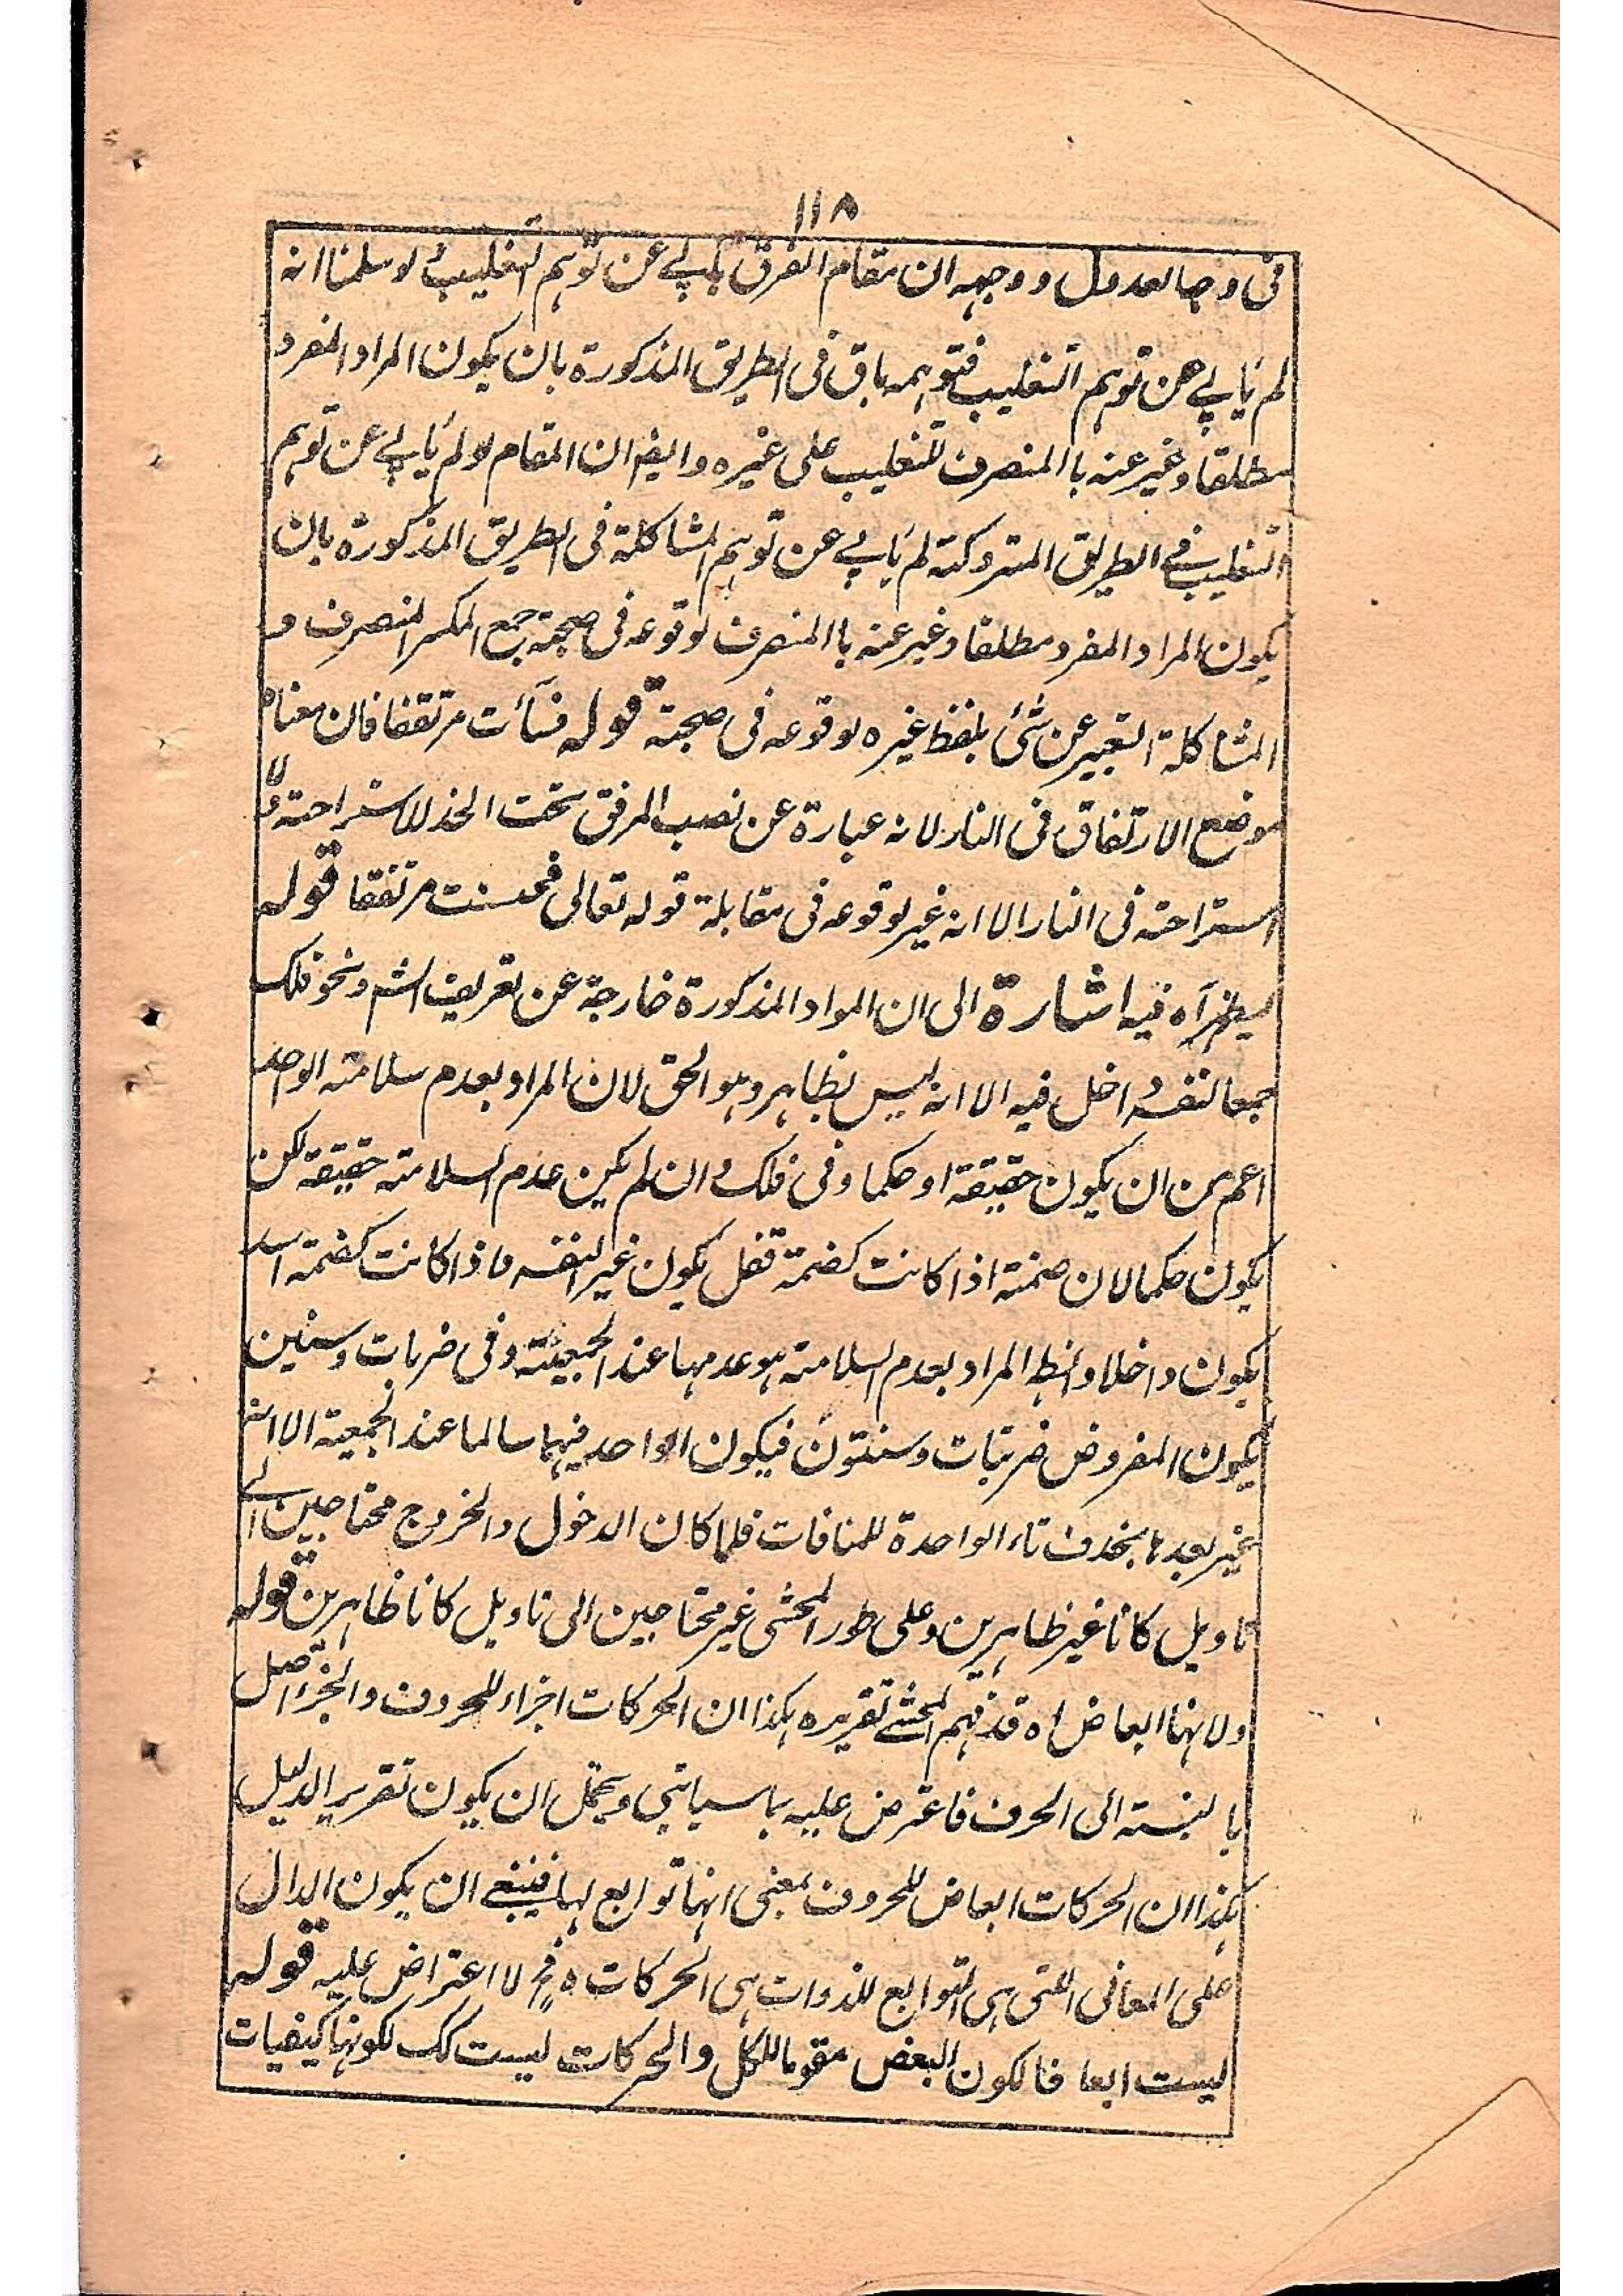 ١١٨
فی وجه العدول ووجهه ان مقام الفرق یابی عن توهم التغلیب لو سلمنا انه
لم یابی عن توهم التغلیب فتوهمه باق فی الطریق المذکورة بان یکون المراد المفرد
مطلقا وغیر عنه با المنصرف لتغلیب علی غیره وایضا ان المقام لو لم یابی عن توهم
التغلیب فی الطریق المتروکته لم یابی عن توهم المشاکلة فی الطریق المذکورة بان
یکون المراد المفرد مطلقا وغیر عنه با المنصرف لوقوعه فی صحبته جمع المکسر المنصرف و
المشاکلة التعبیر عن شئ بلفظ غیره لوقوعه فی صحبته قوله فسآءت مرتفقا فان معناه
موضع الارتفاق فی النار لانه عبارة عن نصب المرفق تحت الخذ للاستراحته ولا
استراحته فی النار الا انه غیر لوقوعه فی مقابلة قوله تعالی فحسنت مرتفقا قوله
آه فیه اشارة الی ان المواد المذکورة خارجة عن تعریف ونحو فلک
جمعا لنفسه داخل فیه الا انه لیس بظاهر وهو الحق لان المراد بعدم سلامته الواحد
اعم من ان یکون حقیقة او حکما وفی فلک وان لم یکن عدم السلامته حقیقة لکن
یکون حکما لان ضمته اذا کانت کضمة قفل یکون غیر النفسه واذا کانت کضمته اسد
یکون داخلا وایضا المراد بعدم السلامته هو عدمها عند الجمعیته وفی ضربات وسنین
یکون المفروض ضربتات وسنتون فیکون الواحد فیهما سالما عند الجمعیته الا انه
غیر بعدها بخذف تاء الواحدة للمنافات فلما کان الدخول والخروج محتاجین الی
تاویل کانا غیر ظاهرین وعلی طور المحشی غیر محتاجین الی تاویل کانا ظاهرین قوله
ولانها ابعاض اه قد فهم المحشی تقریره هکذا ان الحرکات اجزاء للحروف والجزء اصل
بالنسبته الی الحرف فاعترض علیه بما سیاتی ویحتمل ان یکون تقریر الدلیل
هکذا ان الحرکات ابعاض للحروف بمعنی انها توابع لها فینبغی ان یکون الدال
علی المعانی التی هی التوابع للذوات هی الحرکات فح لا اعتراض علیه قوله
لیست ابعاضا لکون البعض مقوما للکل والحرکات لیست کک لکونها کیفیات